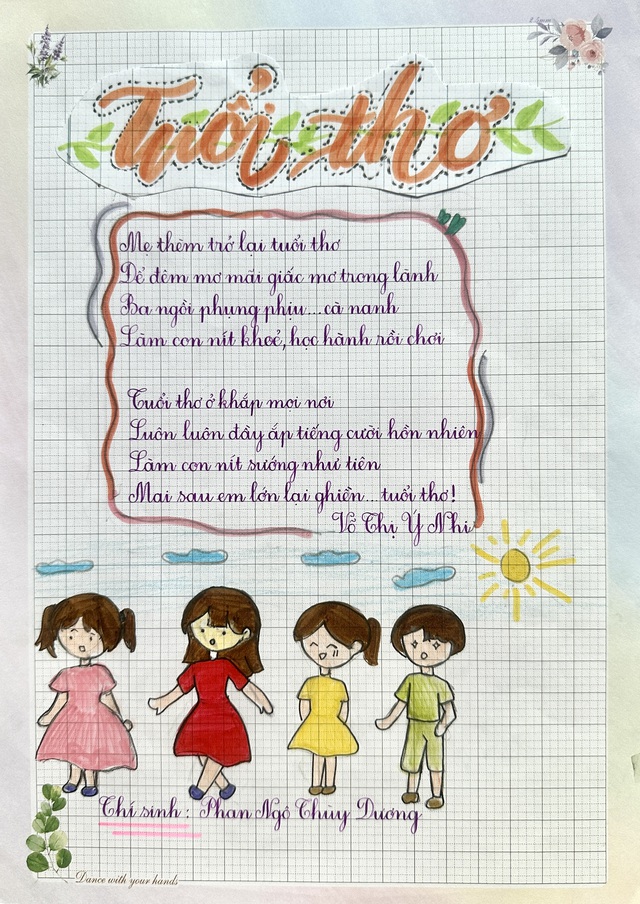 Tuổi thơ
Mẹ thèm trở lại tuổi thơ
Để đêm mơ mãi giấc mơ trong lành
Ba ngồi phụng phịu...cà nanh
Làm con nít khoẻ, học hành rồi chơi
Tuổi thơ ở khắp mọi nơi
Luôn luôn đầy ắp tiếng cười hồn nhiên
Làm con nít sướng như tiên
Mai sau em lớn lại ghiền...tuổi thơ!
Võ Thị Ý Nhi
Thí sinh: Phan Ngô Thùy Dương
Dance with your hands